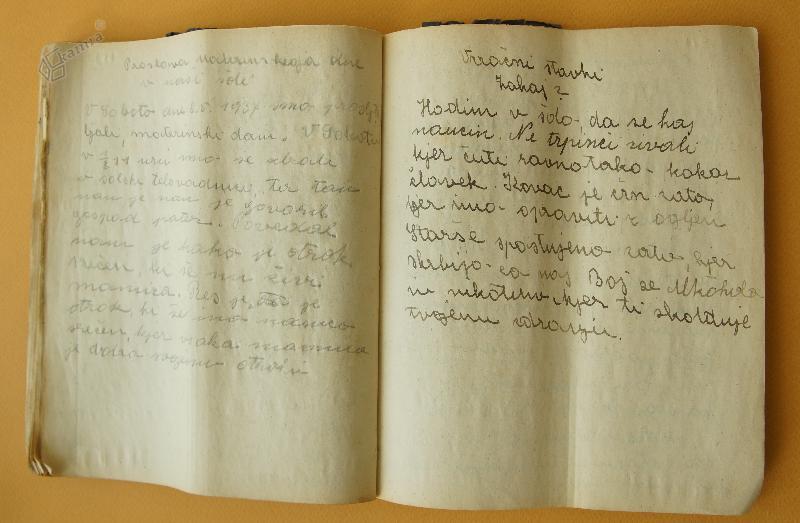 kamra
Proslava materinskega dne
v naši šoli
V soboto dne 8. 5. 1937 smo
materinski dan. V soboto
v uri smo se zbrali
v šolski telovadnici, ter tam
nam je govoril
gospod pater. Povedal
nam je kako je otrok
srečen, ki se mu živi
mamica. Res je, je
otrok, ki se
srečen, kjer vsaka mamica
je dobra svojim
Vzročni stavki
Zakaj?
Hodim v šolo, da se kaj
naučim. Ne trpinči živali
kjer čuti ravnotako kakor
človek. Kovač je črn zato,
ker imo opraviti z ogljem
Starše spoštujemo zato, kjer
skrbijo za nas Boj se Alkohola
in nikotina kjer ti škoduje
tvojemu zdravju.